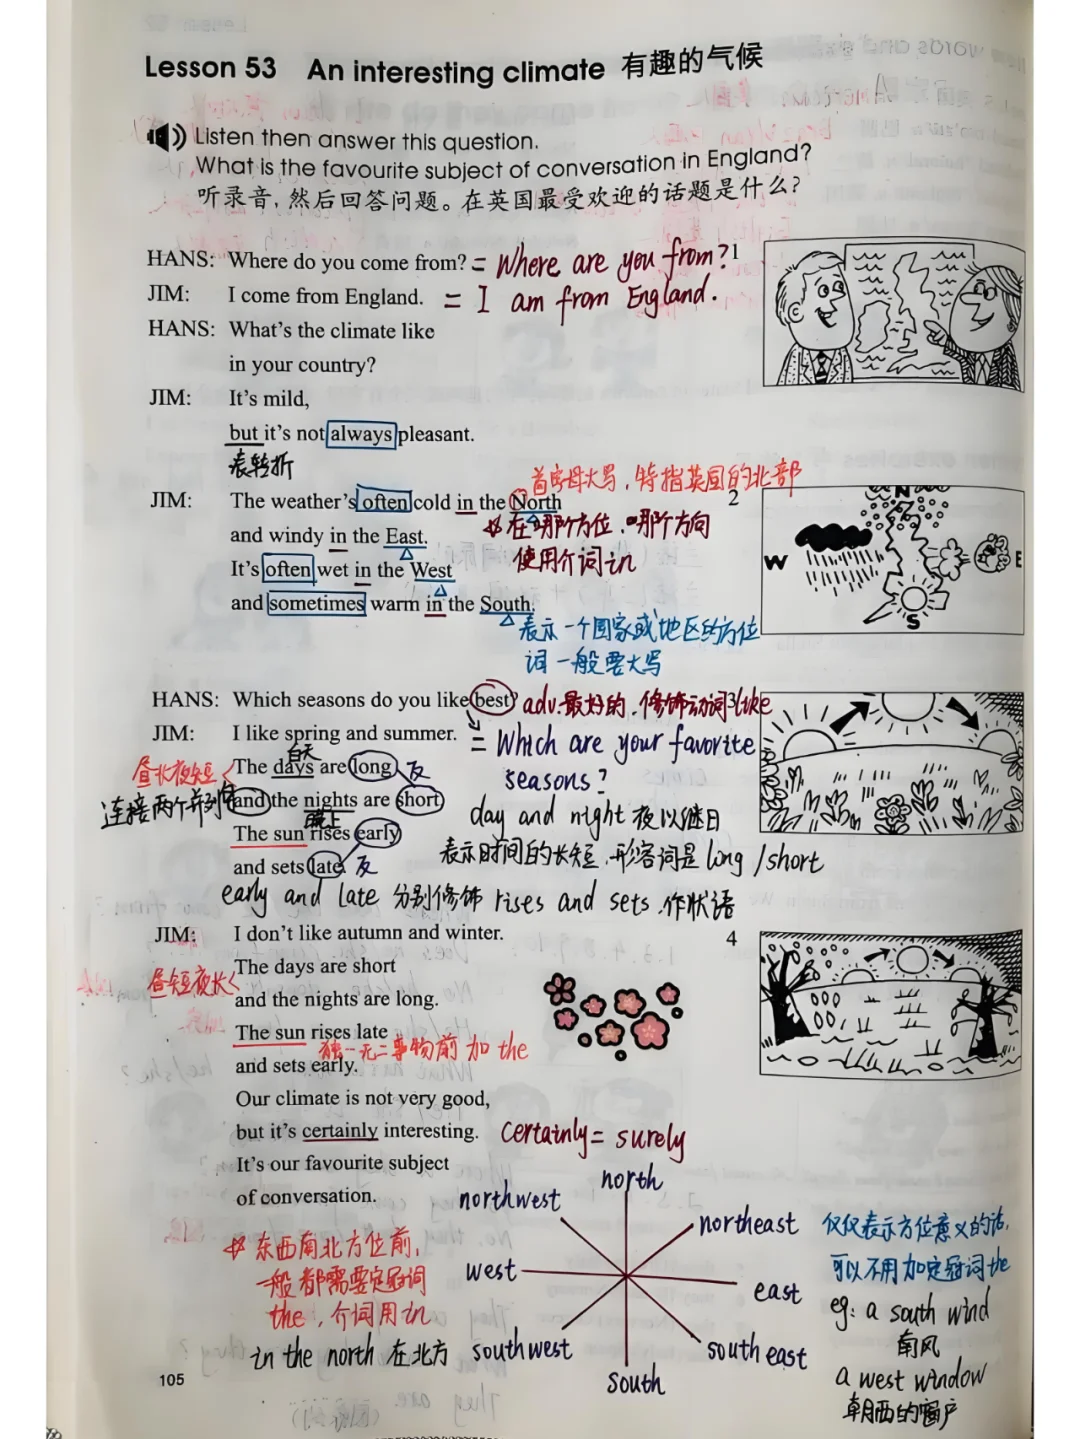 Lesson 53 An interesting climate 有趣的气候
Listen then answer this question.
What is the favourite subject of conversation in England?
听录音，然后回答问题。在英国最受欢迎的话题是什么？
HANS: Where do you come from? = Where are you from? 1
JIM: I come from England. = I am from England.
HANS: What's the climate like
in your country?
JIM: It's mild,
but it's not always pleasant.
表转折
首字母大写，特指英国的北部
JIM: The weather's often cold in the North 2
and windy in the East.
在哪个方位、哪个方向
It's often wet in the West
使用介词in
and sometimes warm in the South.
表示一个国家或地区的方位
词一般要大写
N
W
E
S
HANS: Which seasons do you like best? adv.最好的，修饰动词like 3
JIM: I like spring and summer. = Which are your favorite
seasons?
白天
昼长夜短 The days are long 反
连接两个并列句 and the nights are short
day and night 夜以继日
晚上
The sun rises early
表示时间的长短，形容词是long/short
and sets late. 反
early and late 分别修饰 rises and sets，作状语
JIM: I don't like autumn and winter. 4
The days are short
昼短夜长
and the nights are long.
The sun rises late
独一无二事物前加the
and sets early.
Our climate is not very good,
but it's certainly interesting. certainly = surely
It's our favourite subject
of conversation.
north
northwest
northeast
west
east
southwest
southeast
south
东西南北方位前，
一般都需要定冠词
the，介词用in
in the north 在北方
仅仅表示方位意义的话，
可以不用加定冠词the
eg: a south wind
南风
a west window
朝西的窗户
105